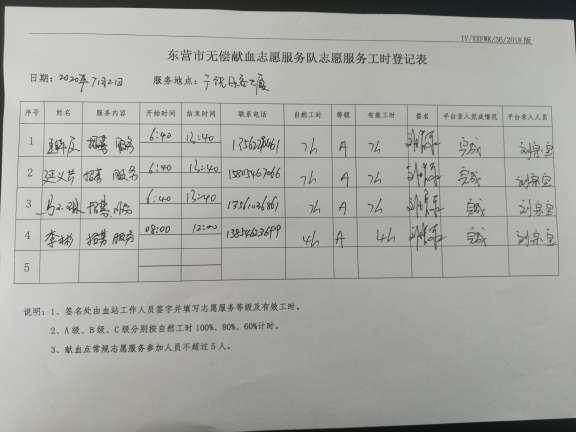 TY/XXFWK/36/2018版
东营市无偿献血志愿服务队志愿服务工时登记表
日期：2020年7月2日 服务地点：
序号 姓名 服务内容 开始时间 结束时间 联系电话 自然工时 等级 有效工时 签名 平台录入完成情况 平台录入人员
1 招募 服务 6:40 13:40 7h A 7h 完成 刘宗宝
2 招募 服务 6:40 13:40 7h A 7h 完成 刘宗宝
3 招募 服务 6:40 13:40 7h A 7h 完成 刘宗宝
4 李彬 招募 服务 08:00 12:00 13854623699 4h A 4h 完成 刘宗宝
5
说明：1、签名处由血站工作人员签字并填写志愿服务等级及有效工时。
2、A级、B级、C级分别按自然工时100%、80%、60%计时。
3、献血点常规志愿服务参加人员不超过5人。